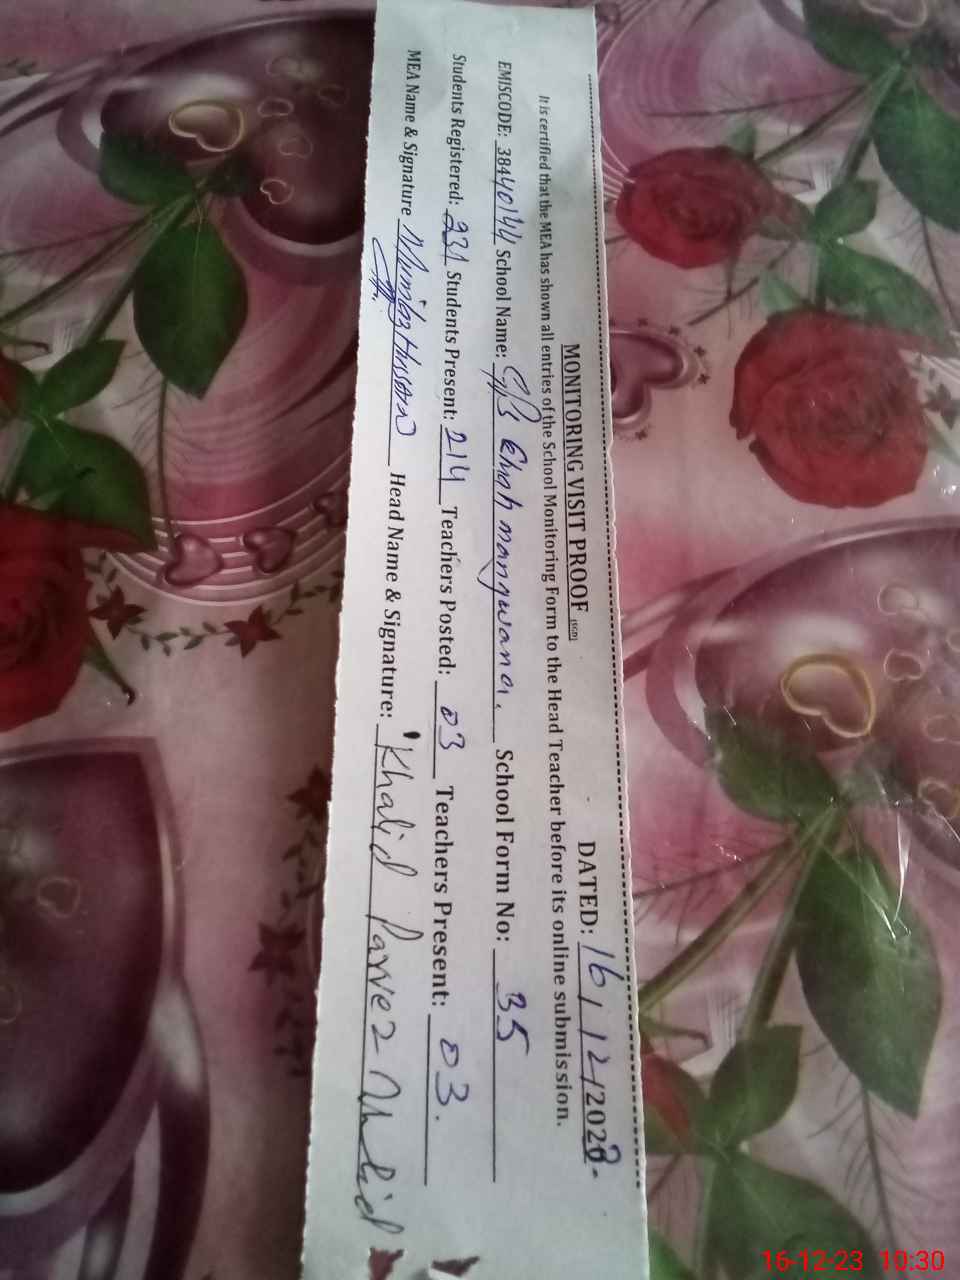 MONITORING VISIT PROOF (SGD) DATED: 16/12/2023-
It is certified that the MEA has shown all entries of the School Monitoring Form to the Head Teacher before its online submission.
EMISCODE: 38440144 School Name: School Form No: 35
Students Registered: 231 Students Present: 214 Teachers Posted: 03 Teachers Present: 03.
MEA Name & Signature Mumtaz Hussain Head Name & Signature: Khalid Parvez
16-12-23 10:30